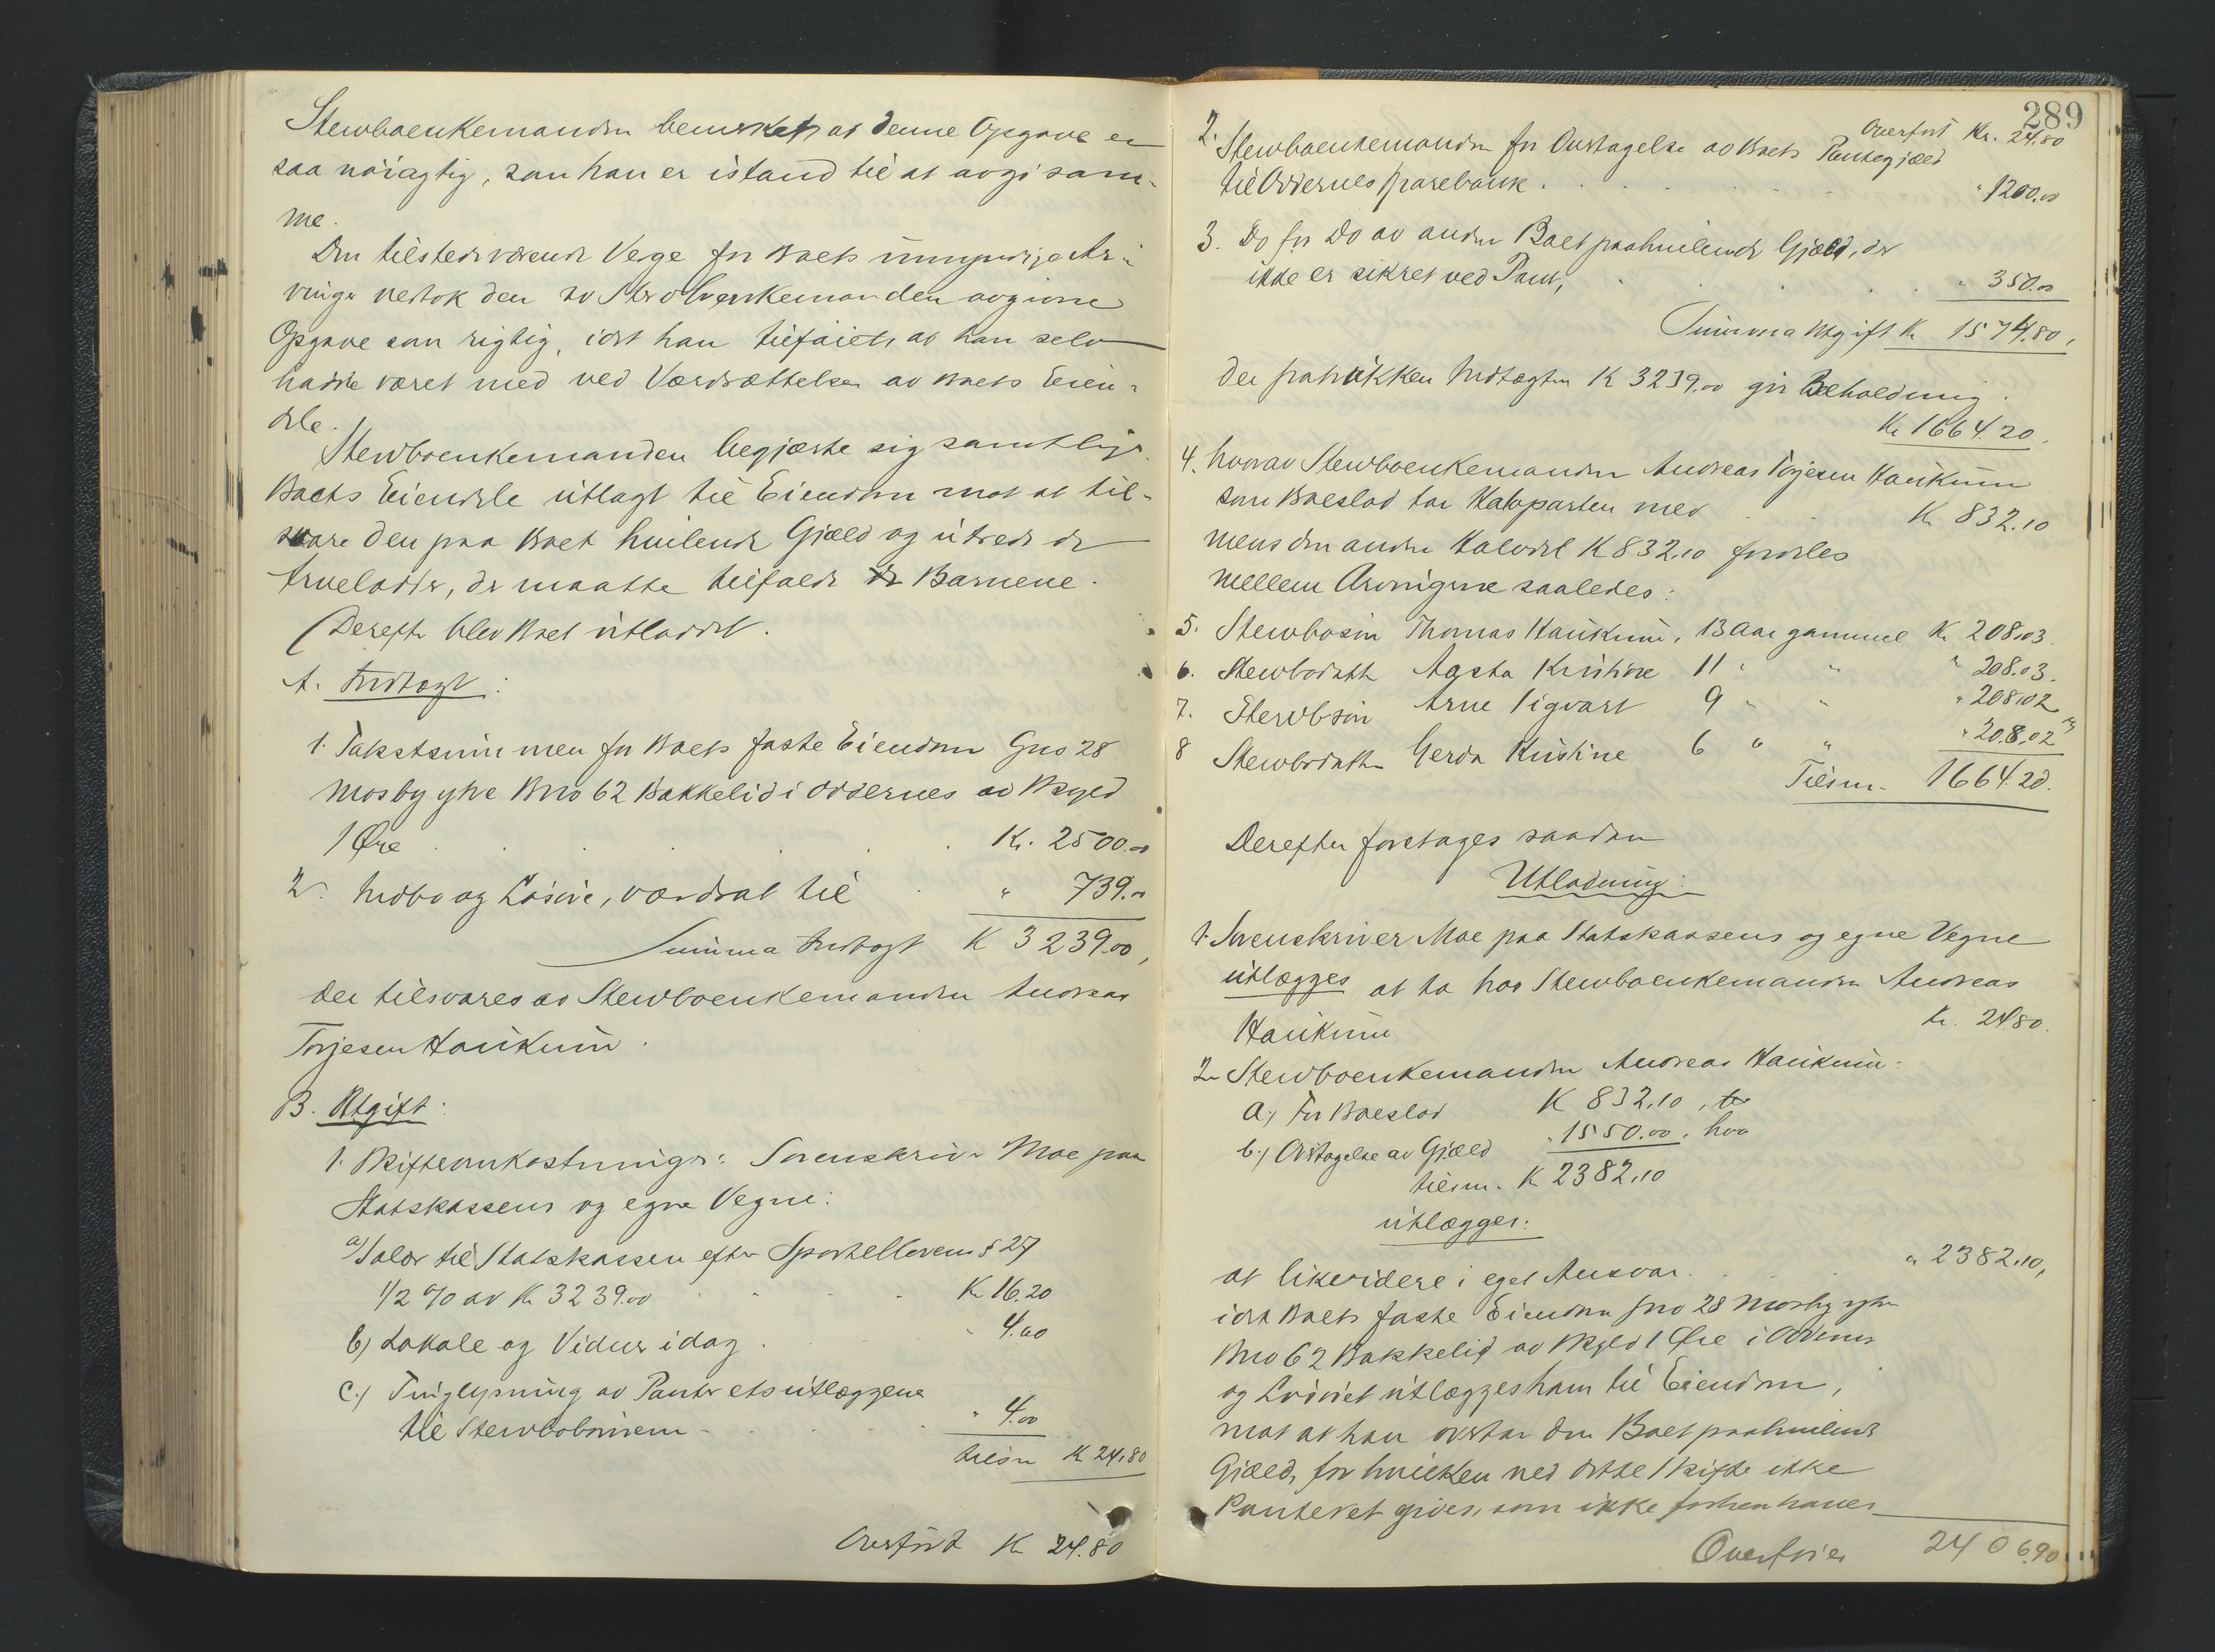 Stervboenkemanden bemerket, at denne Opgave er
saa nöiagtig, som han er istand til at avgi sam-
me.
Den tilstedeværende Verge for Boets umyndige Ar-
vinger vedtok den av Stervboenkemanden avgivne
Opgave som rigtig, idet han tilföiet, at han selv
hadde været med ved Værdsættelsen av Boets Eien-
dele.
Stervboenkemanden begjærte sig samtlige
Boets Eiendele utlagt til Eiendom mot at til-
svare den paa Boet hvilende Gjæld og utrede de
Arvelodder, der maatte tilfalde de Barnene.
Derefter blev Boet utloddet.
A. Indtægt:
1. Takstsummen for Boets faste Eiendom Gno 28
Mosby ytre Bno 62 Bakkelid i Oddernes av Skyld
1 Øre . . . . . . Kr. 2500.00
2. Indbo og Lösöre, værdsat til . " 739.00
Summa Indtægt K 3239.00,
der tilsvares av Stervboenkemanden Andreas
Torjesen Haukum.
B. Utgift:
1. Skifteomkostninger: Sorenskriver Moe paa
Statskassens og egne Vegne:
a) Salær til Statskassen efter Sportellovens § 27
1/2 % av Kr 3239.00 . . . Kr 16.20
b) Lokale og Vidner idag . . " 4.60
c.) Tinglysning av Panteretsutlæggene
til Stervbobörnene . . . " 4.00
tilsm K 24.80
Overfört K 24.80
289
Overfört Kr. 24.80
2. Stervboenkemanden for Overtagelse av Boets Pantegjæld
til Oddernes Sparebank . . . . . " 1200.00
3. Do for Do av anden Boet paahvilende Gjæld, der
ikke er sikret ved Pant, . . . . " 350.00
Summa Utgift K 1574.80,
der fratrukken Indtægten K 3239.00 gir Beholdning.
Kr 1664.20.
4. hvorav Stervboenkemanden Andreas Torjesen Haukum
som Boeslod tar Halvparten med . . K 832.10
mens den anden Halvdel K 832.10 fordeles
mellem Arvingerne saaledes:
5. Stervbosön Thomas Haukum, 13 Aar gammel K. 208.03.
6. Stervbodatt Agsta Kristine 11 " " " 208.03.
7. Stervbsön Arne Sigvart 9 " " " 208.02
8 Stervbodatter Gerda Kristine 6 " " " 208.02
Tilsm. 1664.20.
Derefter foretages saadan
Utlodning:
1. Sorenskriver Moe paa Statskassens og egne Vegne
utlægges at ta hos Stervboenkemanden Andreas
Haukum Kr. 24.80.
2. Stervboenkemanden Andreas Haukum:
a.) For Boeslod K 832.10,
b.) Overtagelse av Gjæld " 1550.00,
tilsm. K 2382.10
utlægges:
at likvidere i eget Ansvar. . . . " 2382.10,
idet Boets faste Eiendom Gno 28 Mosby ytre
Bno 62 Bakkelid av Skyld 1 Øre i Oddernes
og Lösöret utlægges ham til Eiendom,
mot at han overtar den Boet paahvilende
Gjæld, for hvilken ved dette Skifte ikke
Panteret gives, som ikke forhen haves
Overföres 2406.90